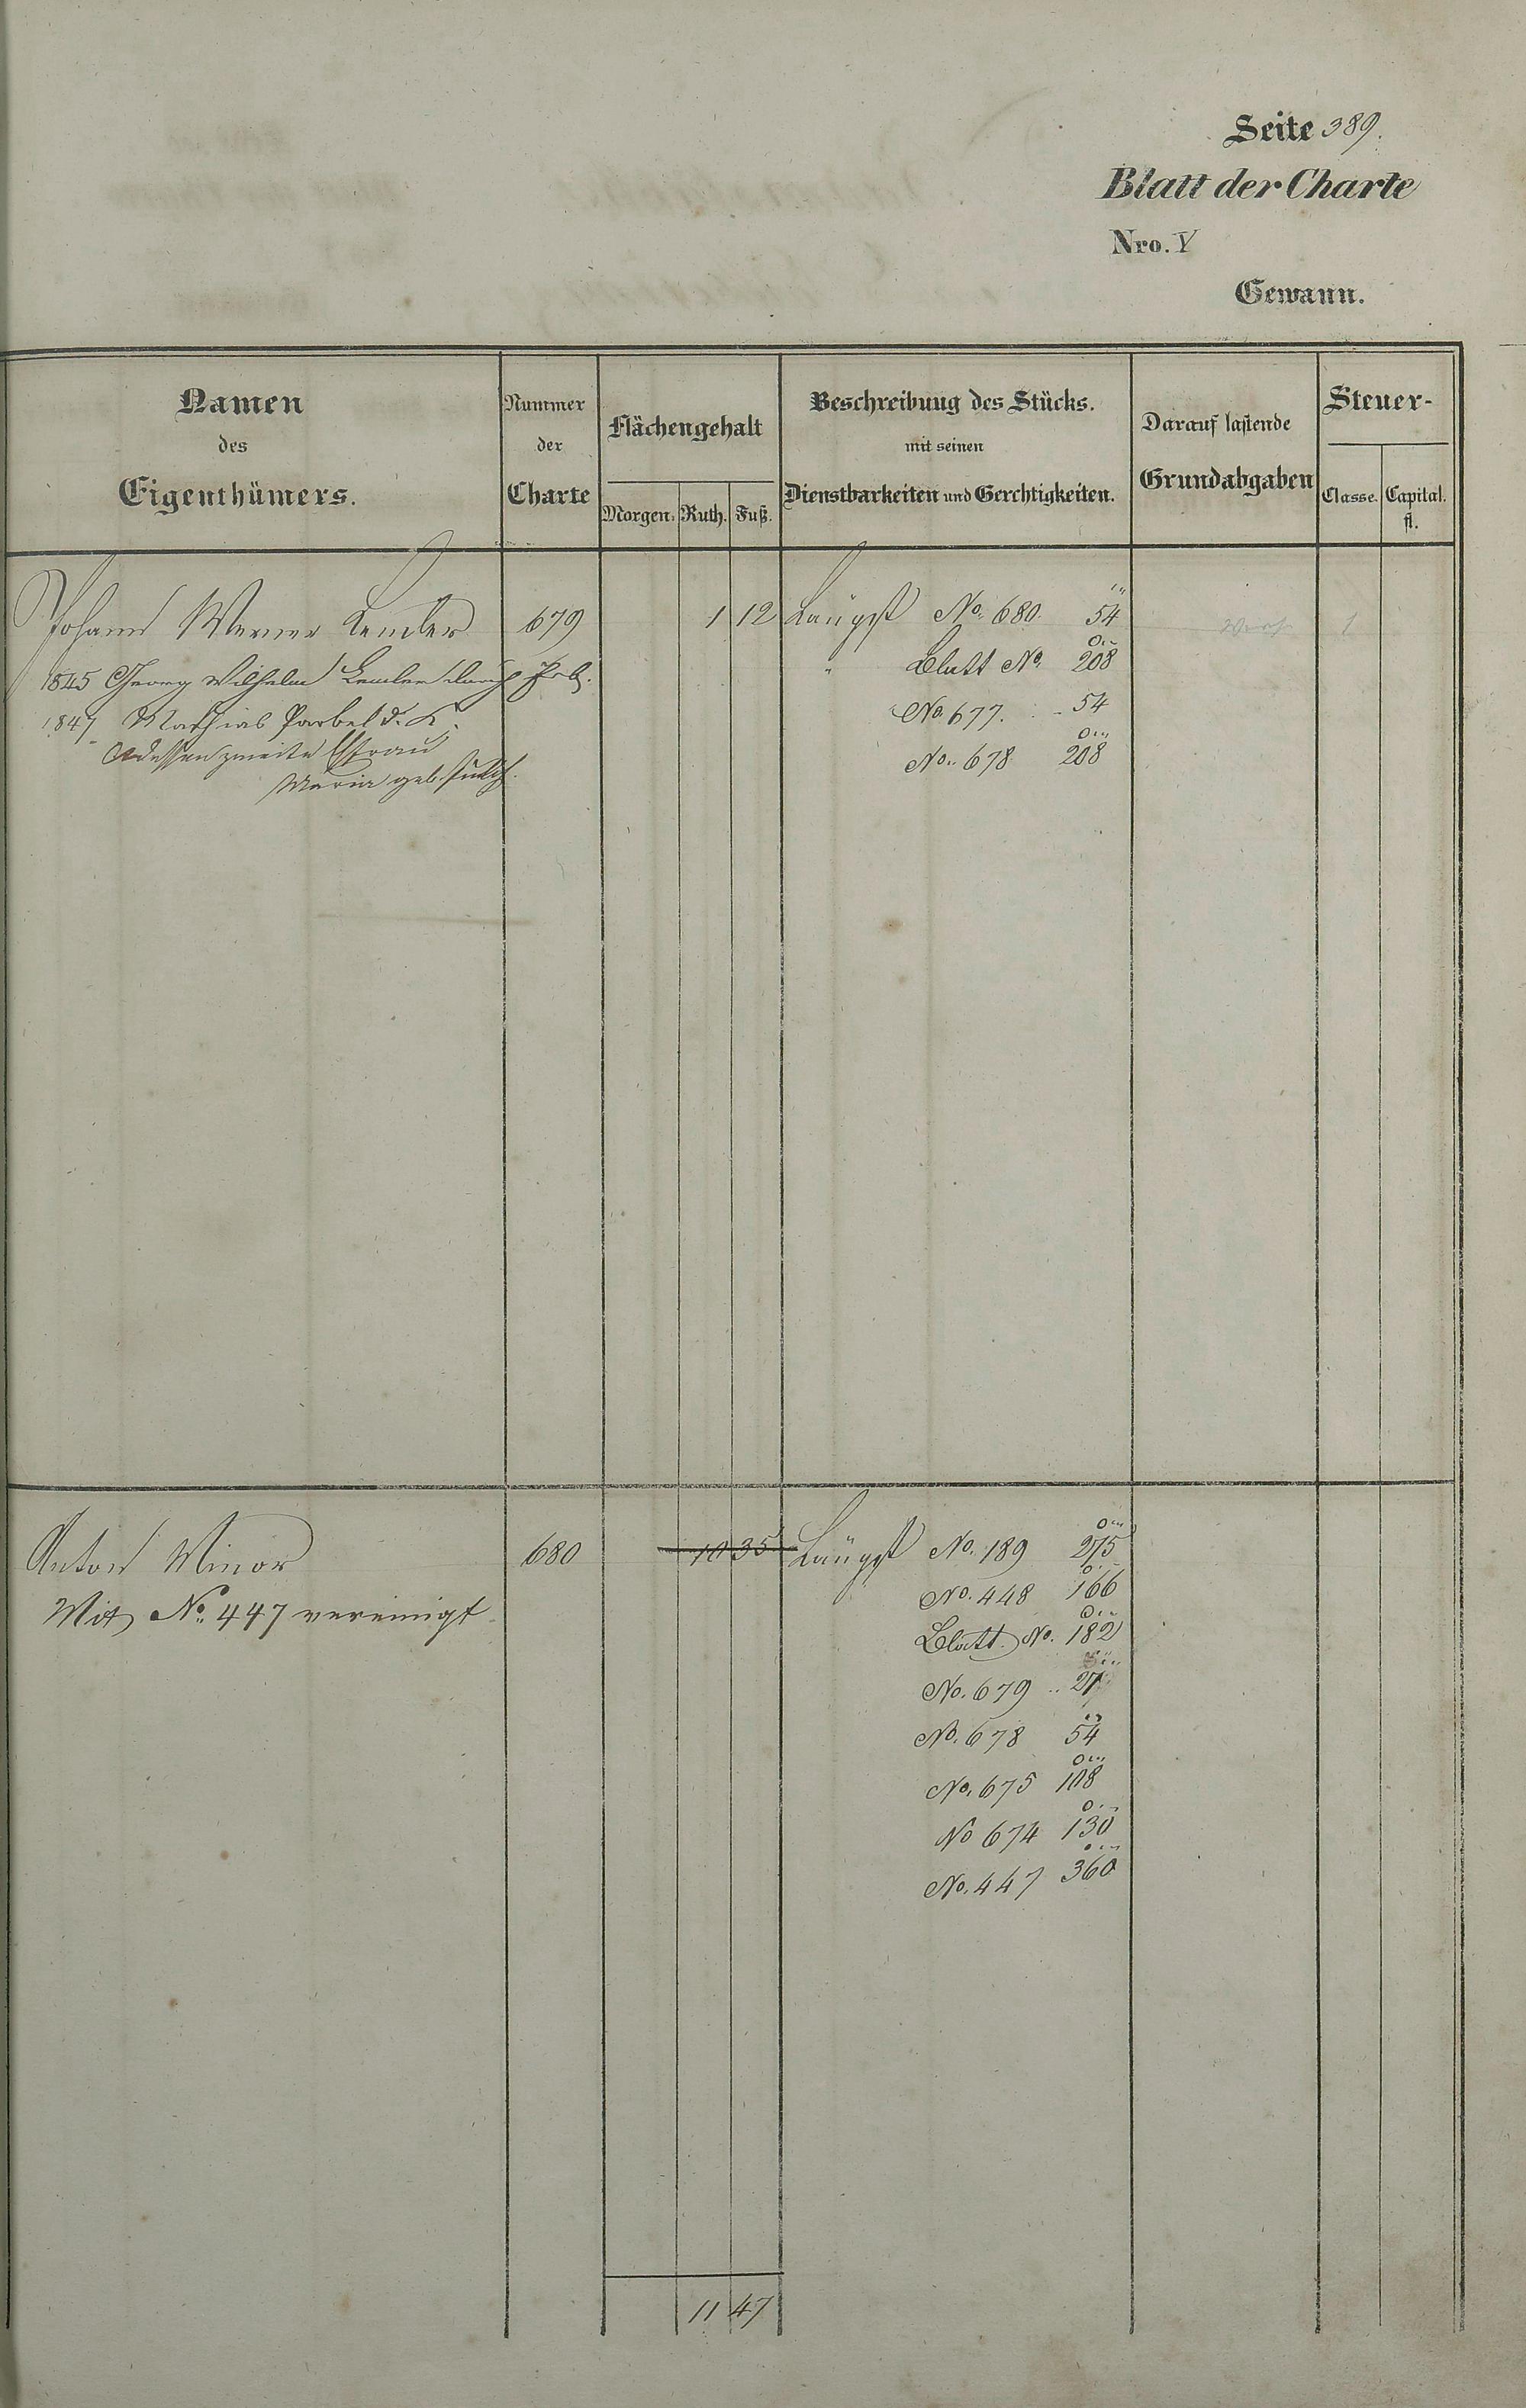 Seite 389.
Blatt der Charte
Nro. V
Gewann.
Namen
des
Eigenthümers.
Nummer
der
Charte
Flächengehalt
Morgen. Ruth. Fuß.
Beschreibung des Stücks.
mit seinen
Dienstbarkeiten und Gerchtigkeiten.
Darauf lastende
Grundabgaben
Steuer-
Classe. Capital.
fl.
Johann Werner Lemler 679 1 12 Längst No. 680. 54 1
1845 Georg Wilhelm Lemler durch
" Blatt No. 208
1847 Mathias d. K.
No. 677. 54
dessen zweite Ehfrau
No. 678 208
Maria geb.
Anton Minor 680 10 35 Längst No. 189 275
No. 448 166
Mit No. 447 vereinigt
Blatt No. 182
No. 679 27
No. 678 54
No. 675 108
No 674 130
No. 447 360
11 47